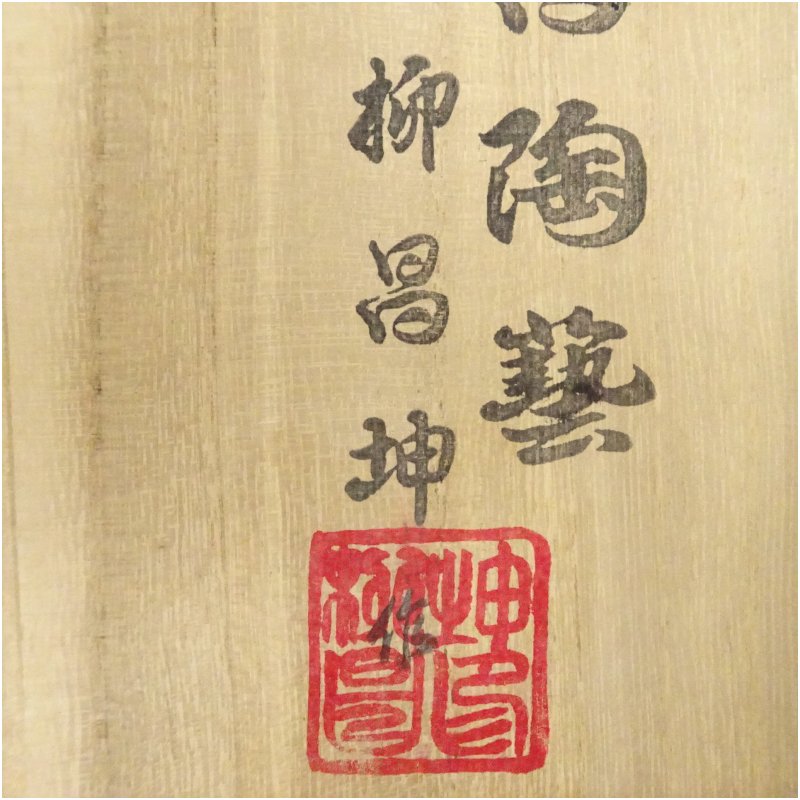 陶藝
柳昌坤
作
坤印
柳昌